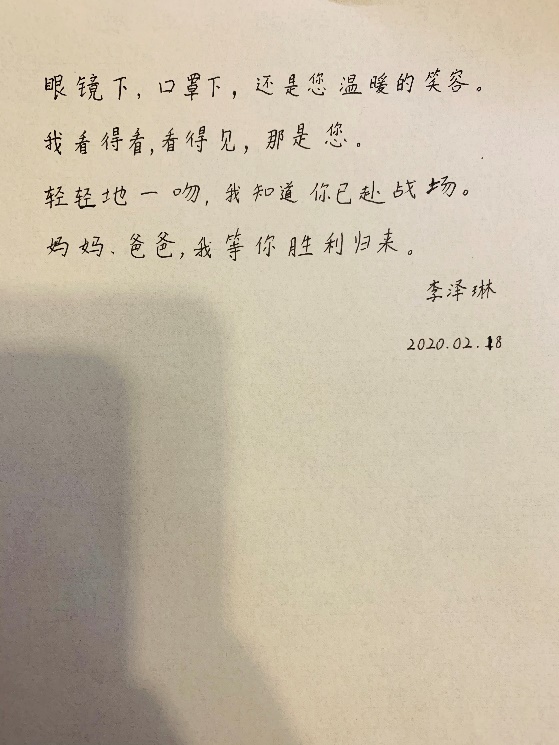 眼镜下，口罩下，还是您温暖的笑容。
我看得看，看得见，那是您。
轻轻地一吻，我知道你已赴战场。
妈妈、爸爸，我等你胜利归来。
李泽琳
2020.02.18